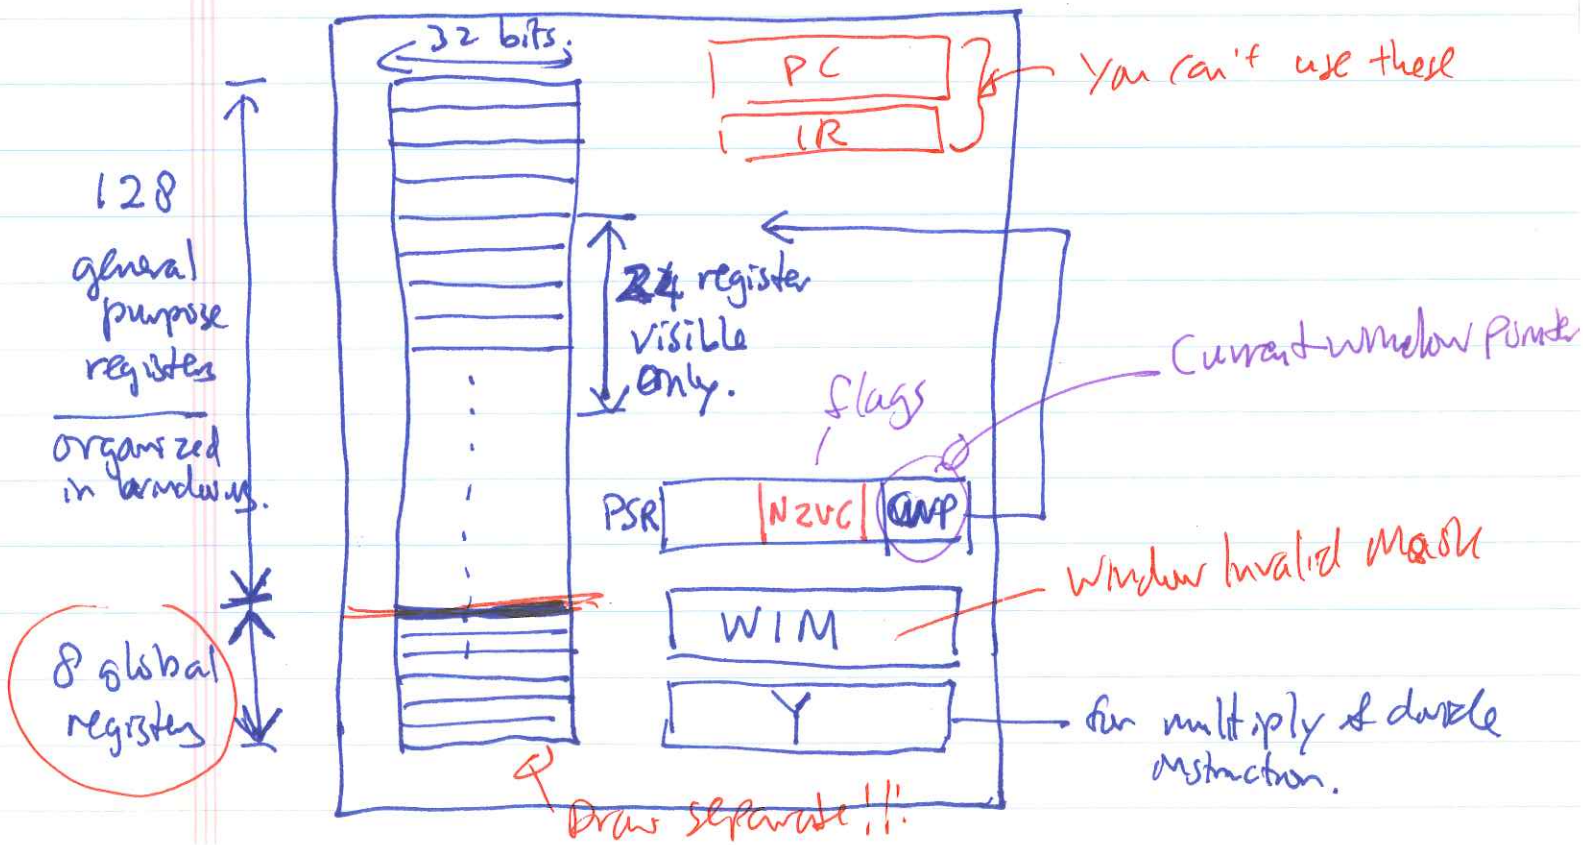 32 bits.
PC
IR
You can't use these
128
general
purpose
registers
organized
in windows.
24 register
visible
only.
flags
Current window Pointer
PSR
NZVC
CWP
Window Invalid Mask
WIM
8 global
registers
Y
for multiply & divide
instruction.
Draw separate!!!